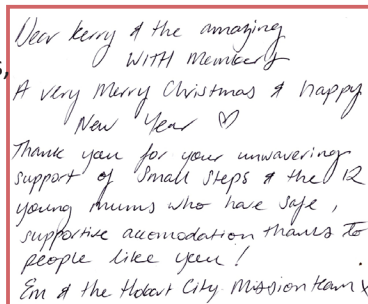 Dear Kerry & the amazing
WITH Members
s,
A very Merry Christmas & happy
New Year ♡
Thank you for your unwavering
support of Small Steps & the 12
young mums who have safe,
supportive accomodation thanks to
people like you!
Em & the Hobart City Mission team x